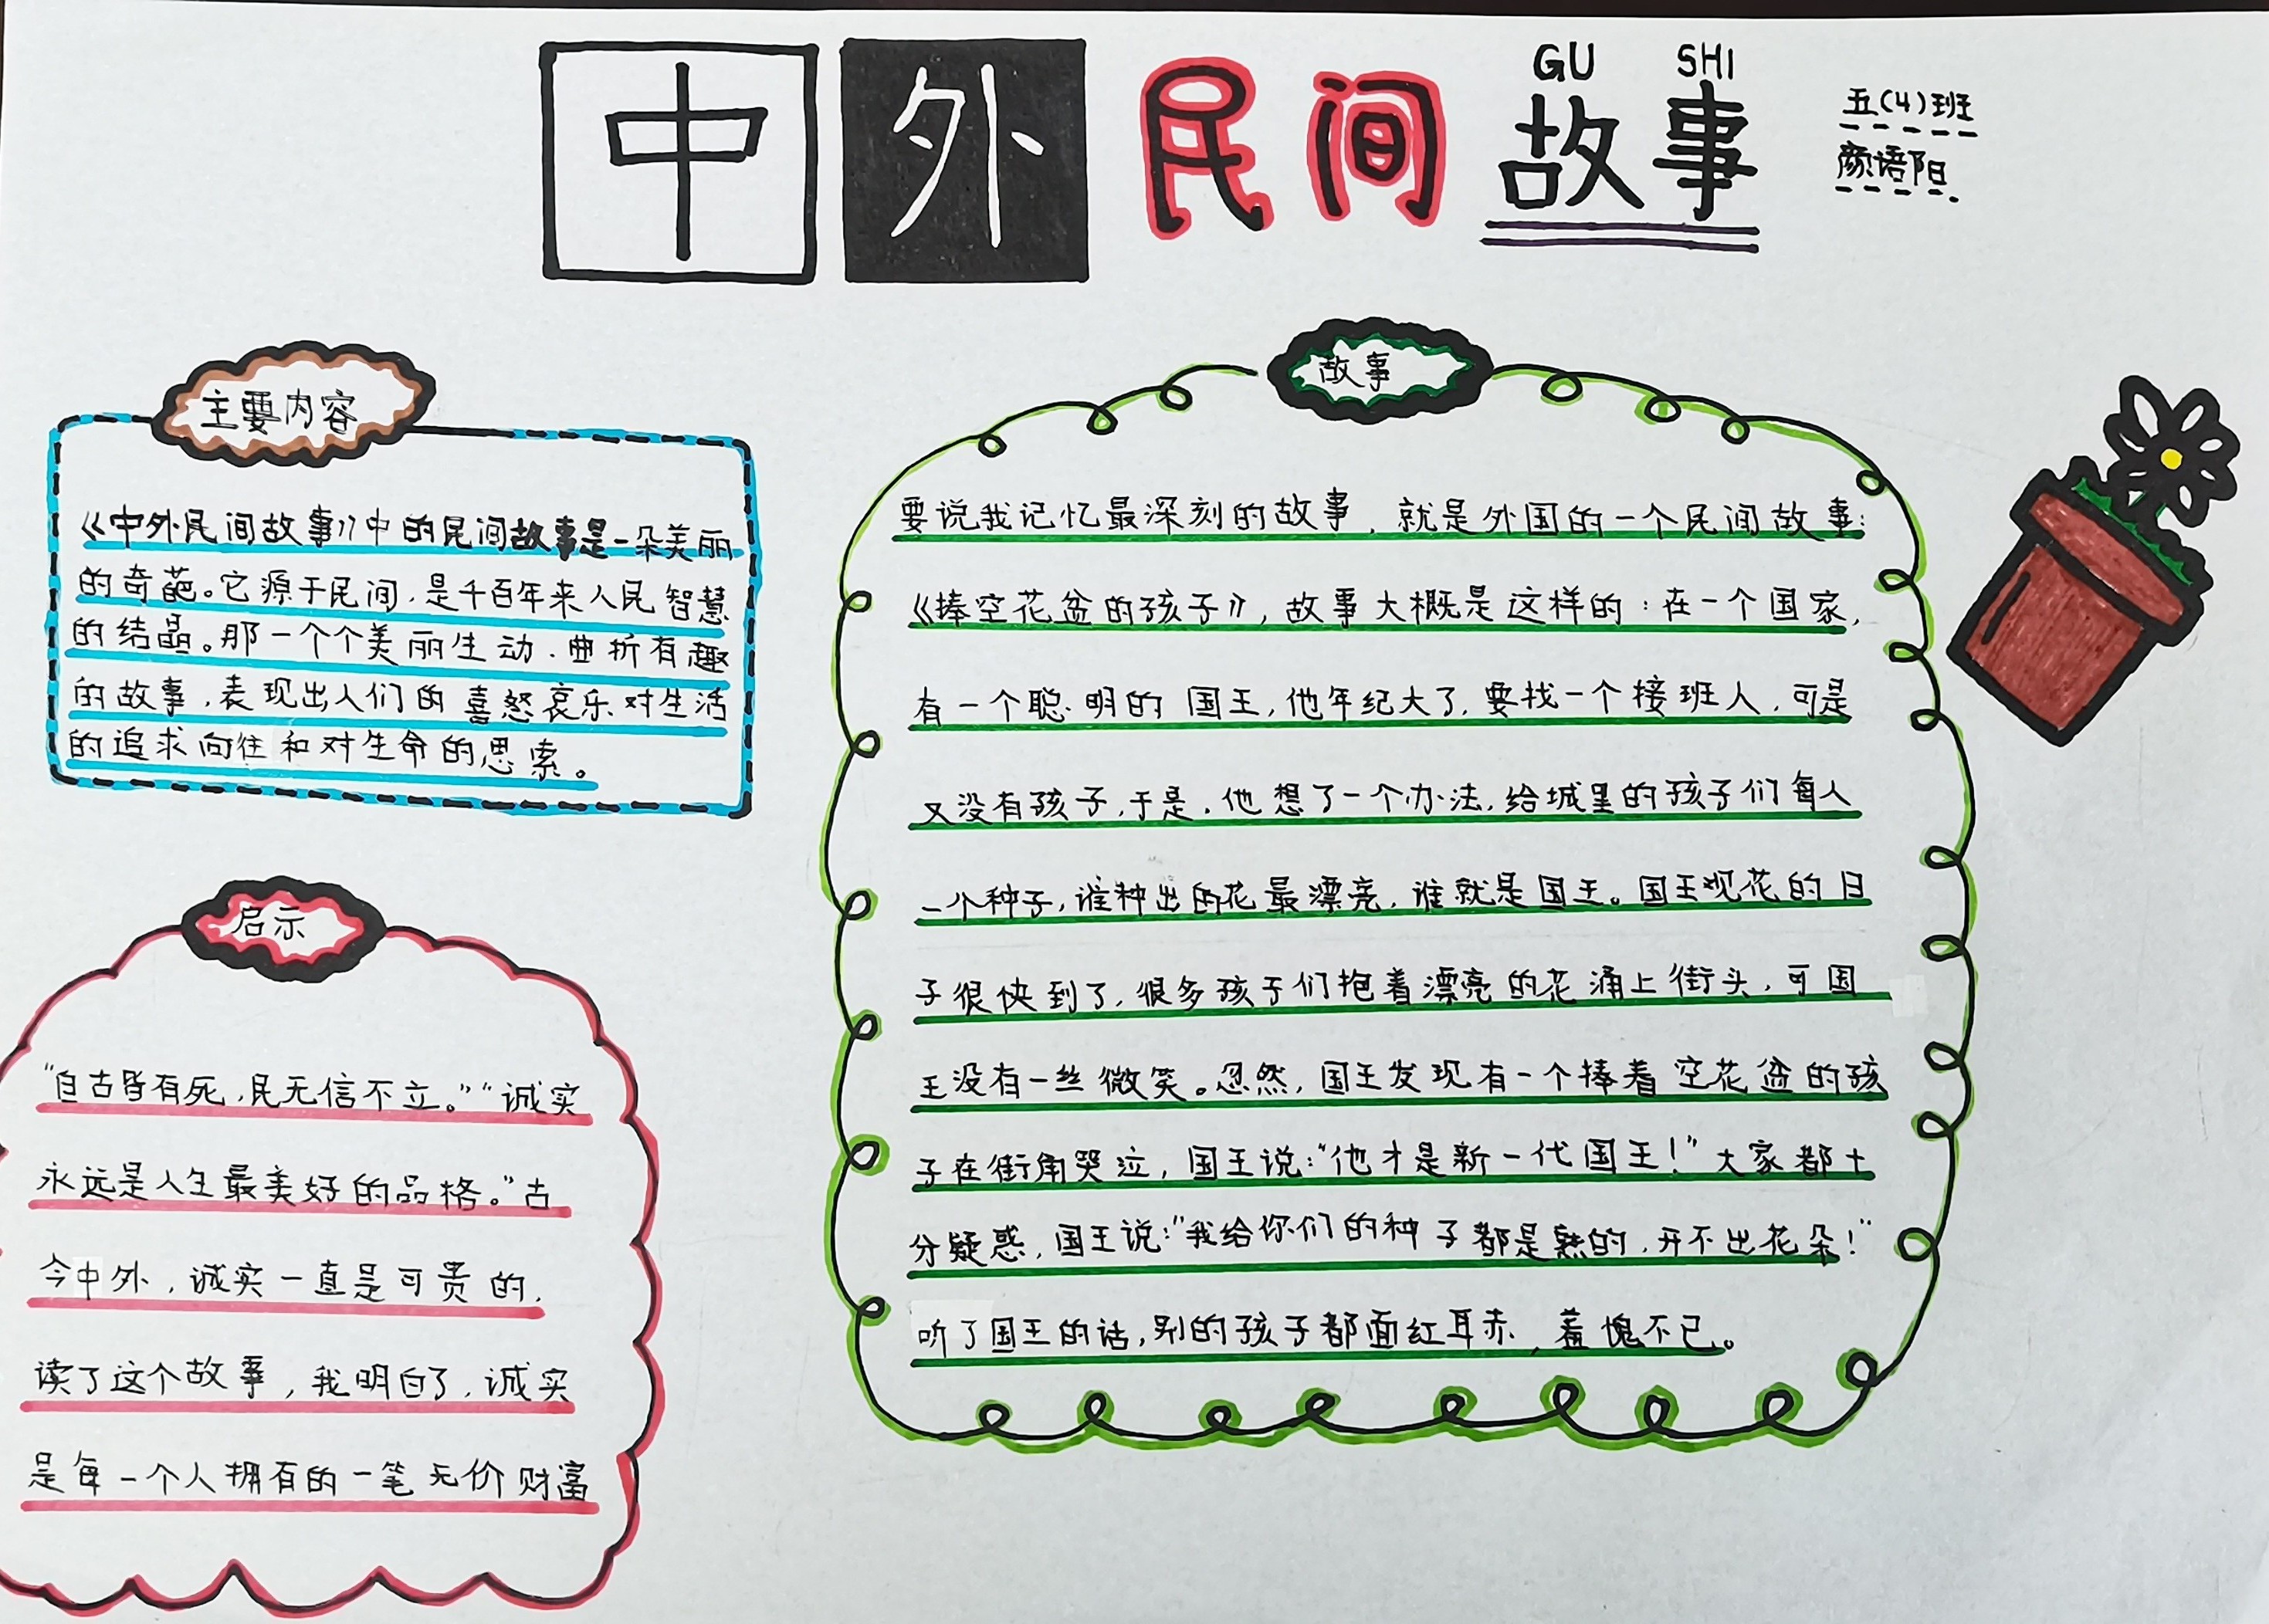 GU SHI
中外民间故事
五(4)班
颜语阳
主要内容
《中外民间故事》中的民间故事是一朵美丽
的奇葩。它源于民间,是千百年来人民智慧
的结晶。那一个个美丽生动、曲折有趣
的故事,表现出人们的喜怒哀乐对生活
的追求向往和对生命的思索。
启示
“自古皆有死,民无信不立。”“诚实
永远是人生最美好的品格。”古
今中外,诚实一直是可贵的,
读了这个故事,我明白了,诚实
是每一个人拥有的一笔无价财富
故事
要说我记忆最深刻的故事,就是外国的一个民间故事:
《捧空花盆的孩子》,故事大概是这样的:在一个国家,
有一个聪明的国王,他年纪大了,要找一个接班人,可是
又没有孩子,于是,他想了一个办法,给城里的孩子们每人
一个种子,谁种出的花最漂亮,谁就是国王。国王观花的日
子很快到了,很多孩子们抱着漂亮的花涌上街头,可国
王没有一丝微笑。忽然,国王发现有一个捧着空花盆的孩
子在街角哭泣,国王说:“他才是新一代国王!”大家都十
分疑惑,国王说:“我给你们的种子都是熟的,开不出花朵!”
听了国王的话,别的孩子都面红耳赤,羞愧不已。